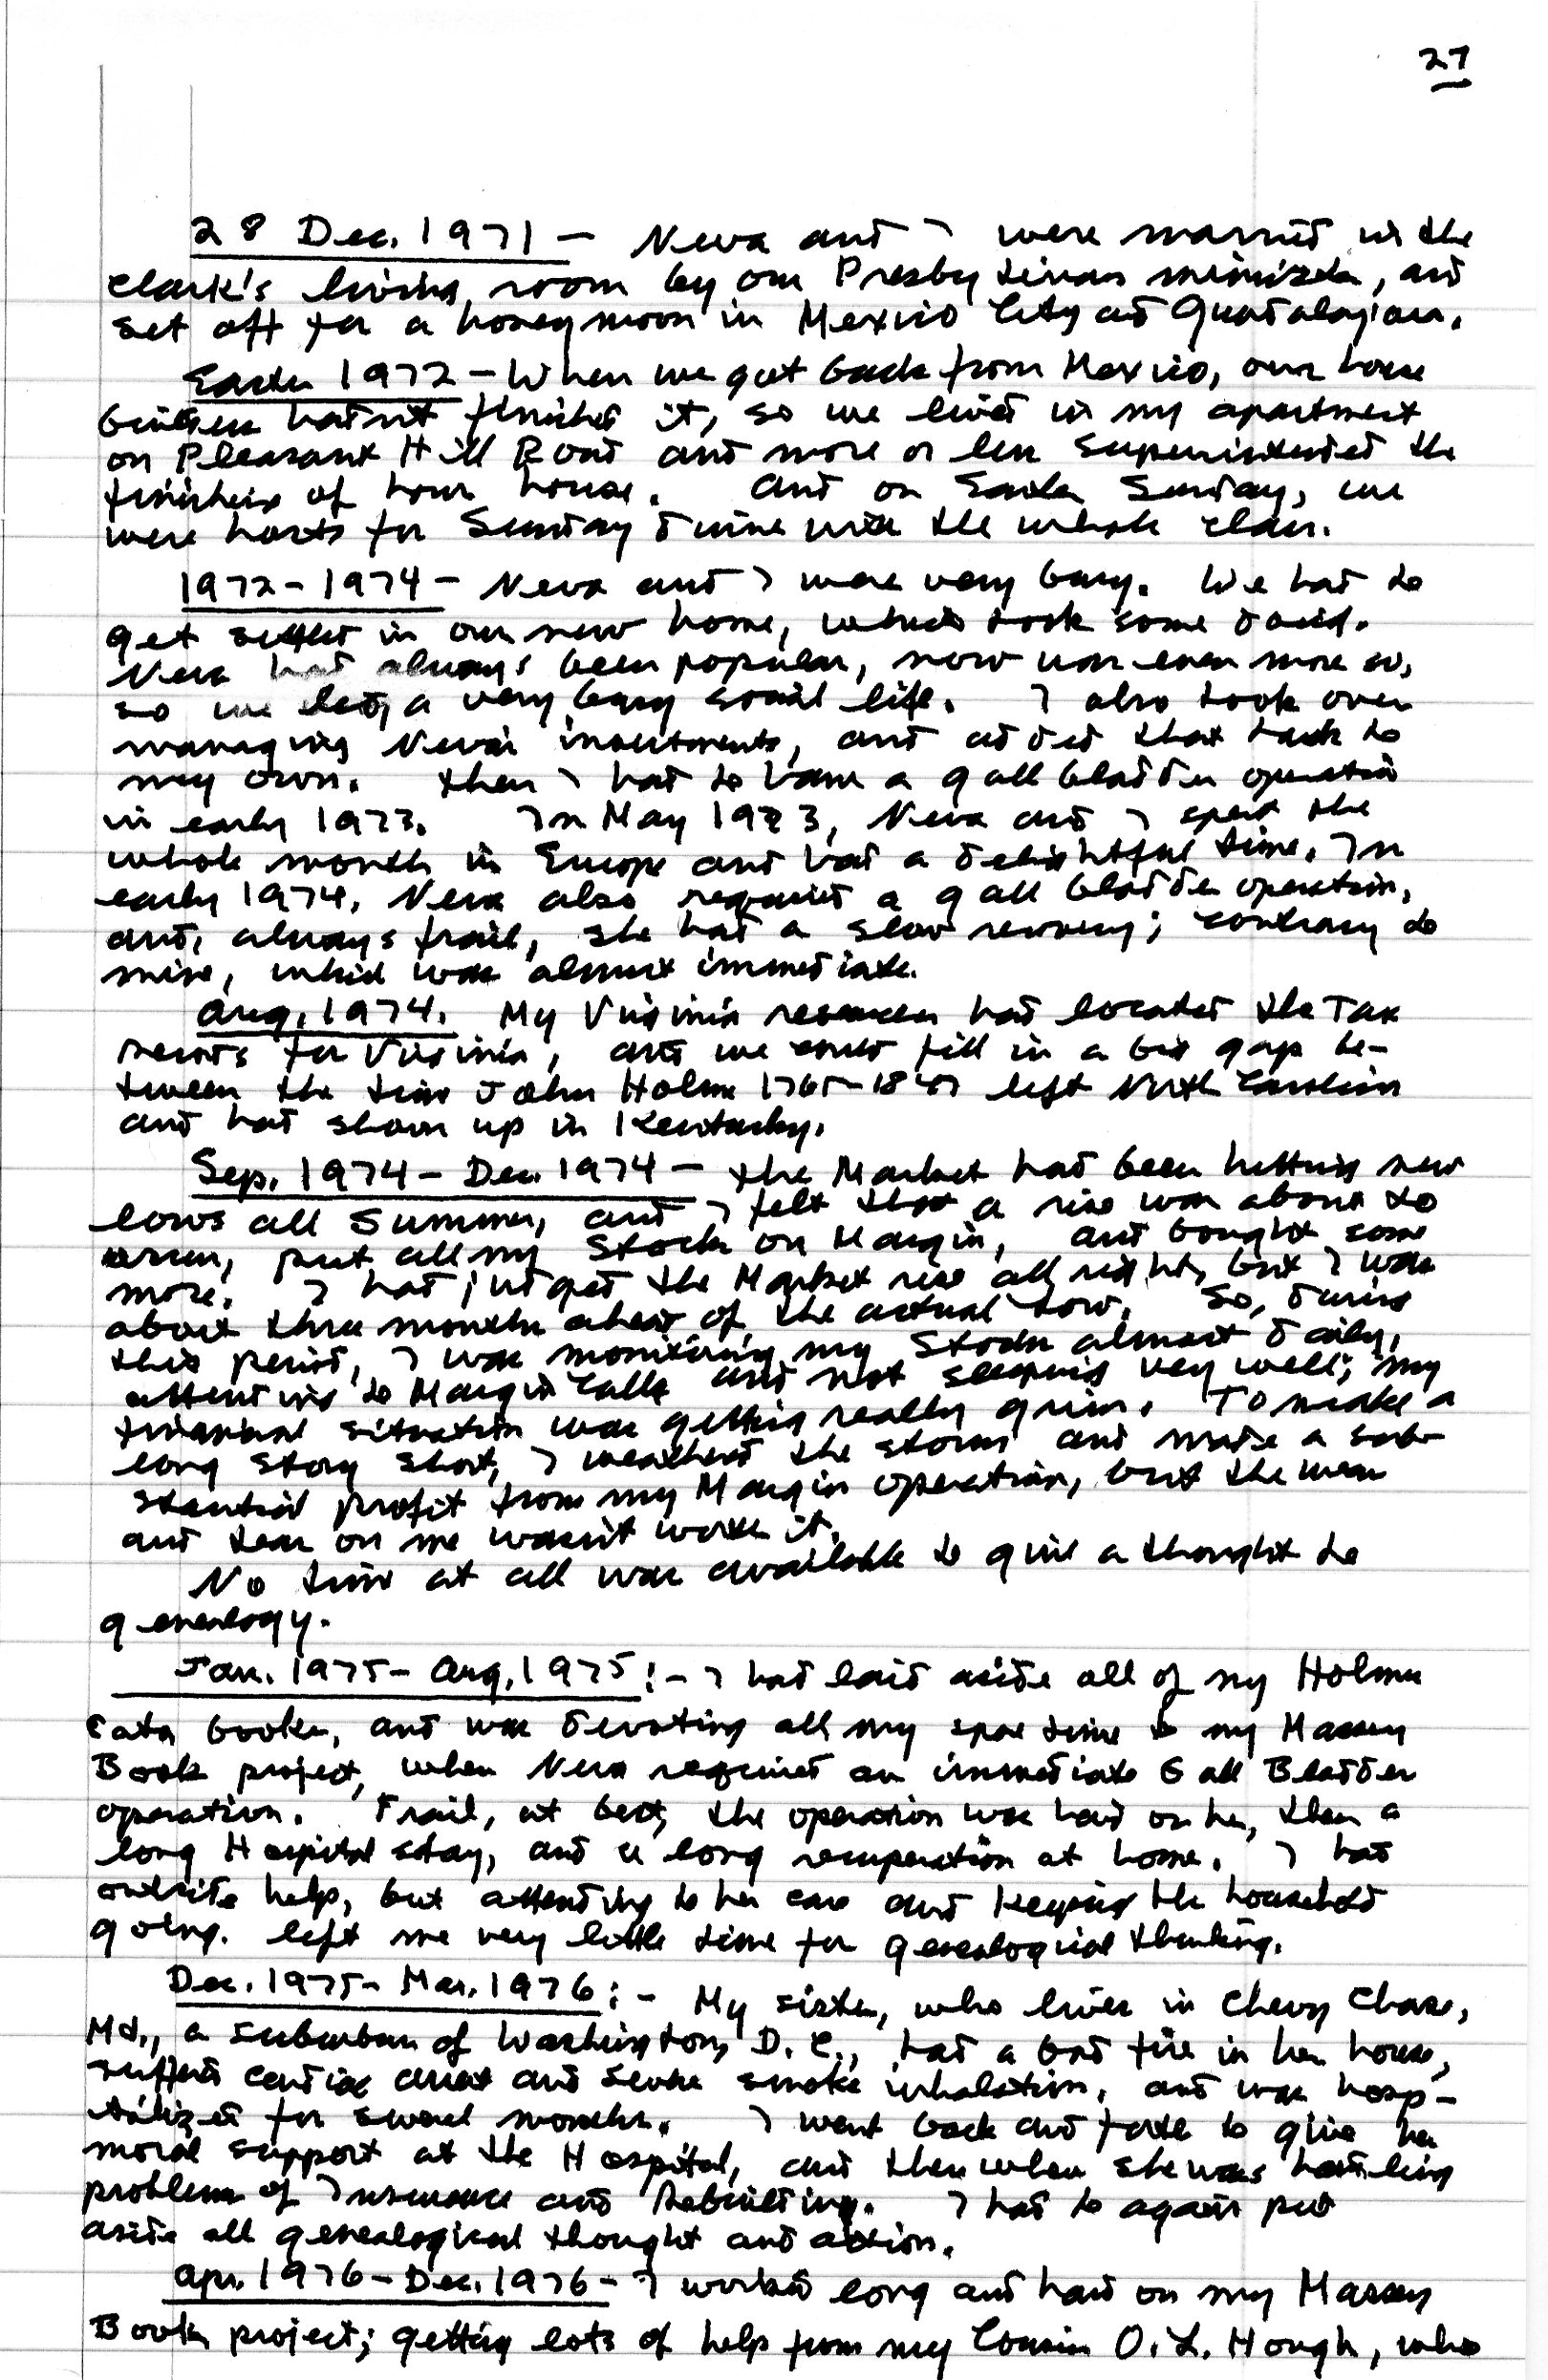 27
28 Dec. 1971 - Neva and I were married in the
Clark's living room by our Presbyterian minister, and
set off for a honeymoon in Mexico City and
Easter 1972 - When we got back from Mexico, our house
hadn't finished it, so we lived in my apartment
on Pleasant Hill Road and more or less superintended the
finishing of house. And on Easter Sunday, we
were hosts for Sunday with the whole clan.
1972-1974 - Neva and I were very busy. We had to
get settled in our new home, which took some doing.
Neva had always been popular, now was even more so,
so we led a very busy social life. I also took over
managing Neva's investments, and added that task to
my own. Then I had to have a gall bladder operation
in early 1973. In May 1973, Neva and I spent the
whole month in Europe and had a delightful time. In
early 1974, Neva also required a gall bladder operation,
and, always frail, she had a slow recovery; contrary to
mine, which was almost immediate.
Aug. 1974. My Virginia researcher had located the Tax
records for Virginia, and we could fill in a big gap be-
tween the time John Holmes left North Carolina
and had shown up in Kentucky.
Sep. 1974 - Dec. 1974 - The Market had been hitting new
lows all Summer, and I felt that a rise was about to
occur, put all my stocks on Margin, and bought some
more. I had judged the Market rise all right, but I was
about three months ahead of the actual low. So, during
this period, I was monitoring my stocks almost daily,
attending to Margin Calls and not sleeping very well; my
financial situation was getting really grim. To make a
long story short, I weathered the storm and made a sub-
stantial profit from my Margin operation, but the wear
and tear on me wasn't worth it.
No time at all was available to give a thought to
genealogy.
Jan. 1975 - Aug. 1975:- I had laid aside all of my Holmes
data books, and was devoting all my spare time to my Massey
Book project, when Neva required an immediate Gall Bladder
operation. Frail, at best, the operation was hard on her, then a
long Hospital stay, and a long recuperation at home. I had
outside help, but attending to her care and keeping the household
going. left me very little time for genealogical thinking.
Dec. 1975 - Mar. 1976:- My sister, who lives in Chevy Chase,
Md., a suburban of Washington, D.C., had a bad fire in her house,
suffered cardiac arrest and severe smoke inhalation, and was hosp-
italized for several months. I went back and forth to give her
moral support at the Hospital, and then when she was handling
problems of Insurance and Rebuilding. I had to again put
aside all genealogical thought and action.
Apr. 1976 - Dec. 1976 - I worked long and hard on my Massey
Book project; getting lots of help from my Cousin O. L. Hough, who